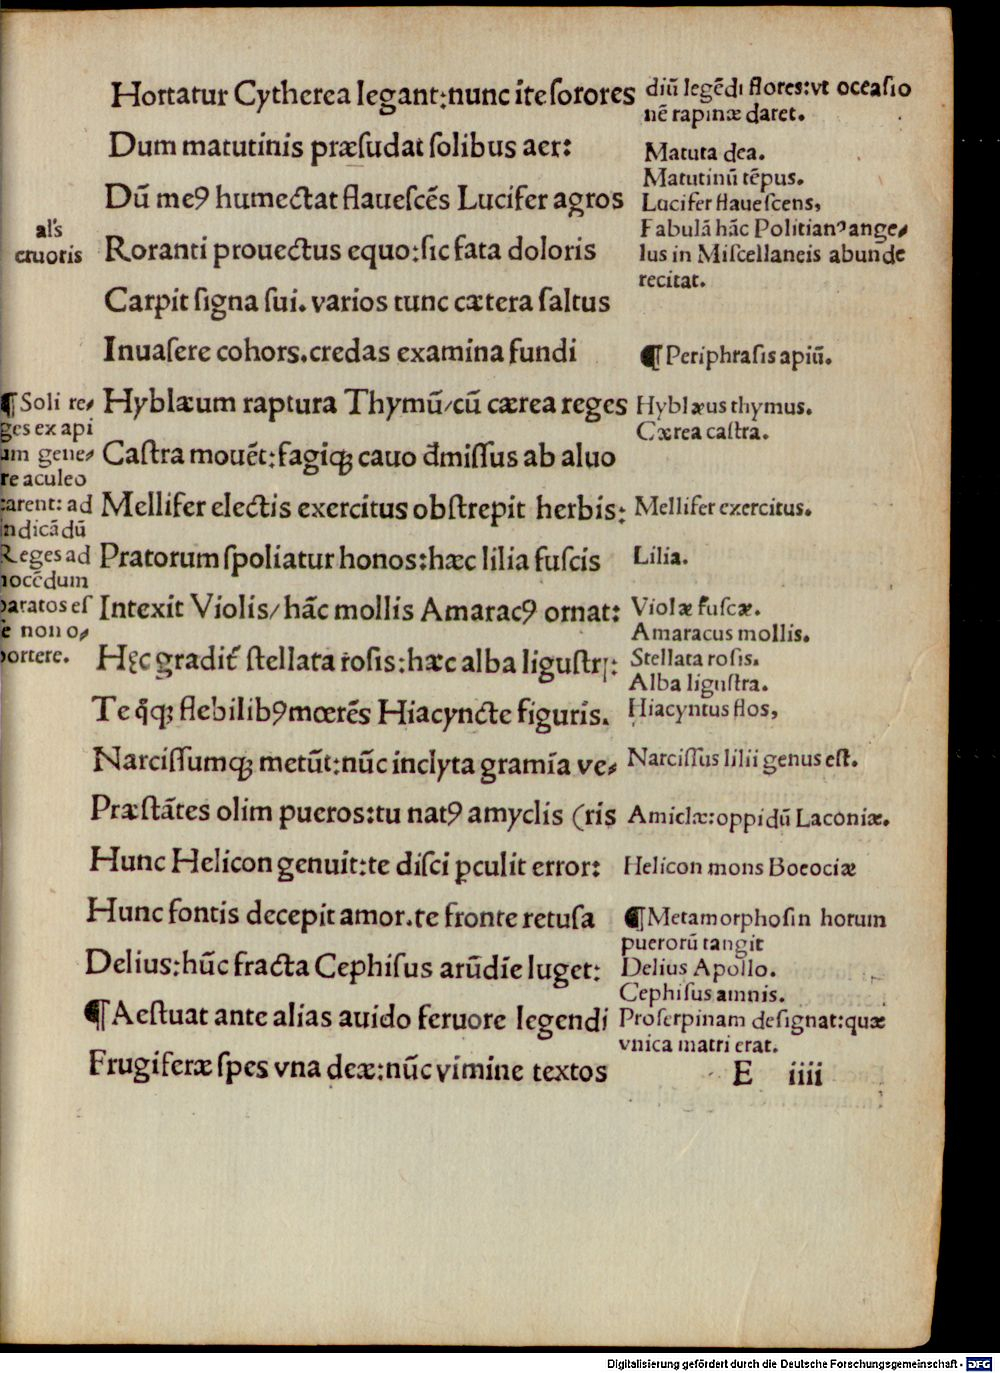 Hortatur Cytherea legant:nunc ite sorores
Dum matutinis præsudat solibus aer:
Dū meꝰ humectat flauescēs Lucifer agros
Roranti prouectus equo:sic fata doloris
Carpit signa sui. varios tunc cætera saltus
Inuasere cohors.credas examina fundi
Hyblæum raptura Thymū/cū cærea reges
Castra mouēt:fagiqꝫ cauo đmissus ab aluo
Mellifer electis exercitus obstrepit herbis:
Pratorum spoliatur honos:hæc lilia fuscis
Intexit Violis/hāc mollis Amaracꝰ ornat:
Hęc gradit᷑ stellata rosis:hæc alba ligustrꝭ:
Te q̄qꝫ flebilibꝰ mœrēs Hiacyncte figuris.
Narcissumqꝫ metūt:nūc inclyta gramīa ve⸗
Præstātes olim pueros:tu natꝰ amyclis (ris
Hunc Helicon genuit:te disci ꝑculit error:
Hunc fontis decepit amor.te fronte retusa
Delius:hūc fracta Cephisus arūdīe luget:
¶ Aestuat ante alias auido feruore legendi
Frugiferæ spes vna deæ:nūc vimine textos
als
cruoris
¶ Soli re⸗
ges ex api
um gene⸗
re aculeo
carent: ad
indicādū
Reges ad
nocēdum
paratos es
se non o⸗
portere.
diū legēdi flores:vt occasio
nē rapinæ daret.
Matuta dea.
Matutinū tēpus.
Lucifer flauescens,
Fabulā hāc Politianꝰ ange⸗
lus in Miscellaneis abunde
recitat.
¶ Periphrasis apiū.
Hyblæus thymus.
Cærea castra.
Mellifer exercitus.
Lilia.
Violæ fuscæ.
Amaracus mollis.
Stellata rosis.
Alba ligustra.
Hiacyntus flos,
Narcissus lilii genus est.
Amiclæ:oppidū Laconiæ.
Helicon mons Boeociæ
¶ Metamorphosin horum
puerorū tangit
Delius Apollo.
Cephisus amnis.
Proserpinam designat:quæ
vnica matri erat.
E iiii
Digitalisierung gefördert durch die Deutsche Forschungsgemeinschaft - DFG